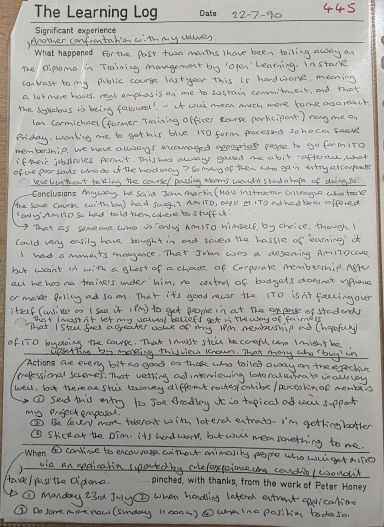 The Learning Log
Date 22-7-90
445
Significant experience
Another confrontation with my values
What happened For the past two months I have been toiling away on
the Diploma in Training Management by 'open' learning. In stark
contrast to my public course last year this is hard work, meaning
a lot more hours, real emphasis on me to sustain commitment, and that
the syllabus is being followed! - it will mean much more to me as a result.
Ian Carmichael (former Training Officer course participant) rang me on
Friday wanting to get his blue ITD form processed so he can
membership. We have always encouraged appropriate people to go for MITD
if their job/roles permit. This has always caused me a bit - after all, what
of we poor souls who do it the hard way? Some of them who gain entry at corporate
level without toiling the course / passing exams wouldn't stand a hope of doing so.
Conclusions Anyway we said John Martin (HGV Instructor Colleague who took
the same course with Ian) had sought AMITD, MITD and had been offered
'only' AMITD so had 'told them where to stuff it'
→ That as someone who is 'only' AMITD himself, by choice, though I
could very easily have bought in and saved the hassle of 'earning' it
I had a moment's annoyance. That John was a deserving AMITD case
but wasn't in with a ghost of a chance of Corporate membership. After
all he has no trainers under him, no control of budgets, does not
or make policy and so on. That it's good news the ITD isn't falling over
itself (unlike as I see it IPM) to get people in at the expense of standards
That I mustn't let my values/beliefs get in the way of fairness
That I still feel a greater value of my IPM membership and (hopefully)
of ITD by doing the course. That I must still be careful who I might be
upsetting by making this view known. That many who 'buy in'
Actions are every bit as good as those who toiled away on the respective
professional schemes. That vetting and interviewing lateral entrants is all very
well, but there are still two very different routes/calibre of members
→ ① Send this entry to Joe Bradley it is topical and will support
my Project proposal.
② Be (even) more tolerant with lateral entrants - I'm getting better
③ Stick at the Dim - it's hard work, but will mean something to me.
④ continue to encourage without animosity people who will get MITD
When
via an application supported by role/experience who couldn't/wouldn't
take/pass the Diploma.
pinched, with thanks, from the work of Peter Honey
→ ① Monday 23rd July ② when handling lateral entrant applications
③ Do some more now (Sunday 11.00am) ④ when in a position to do so.